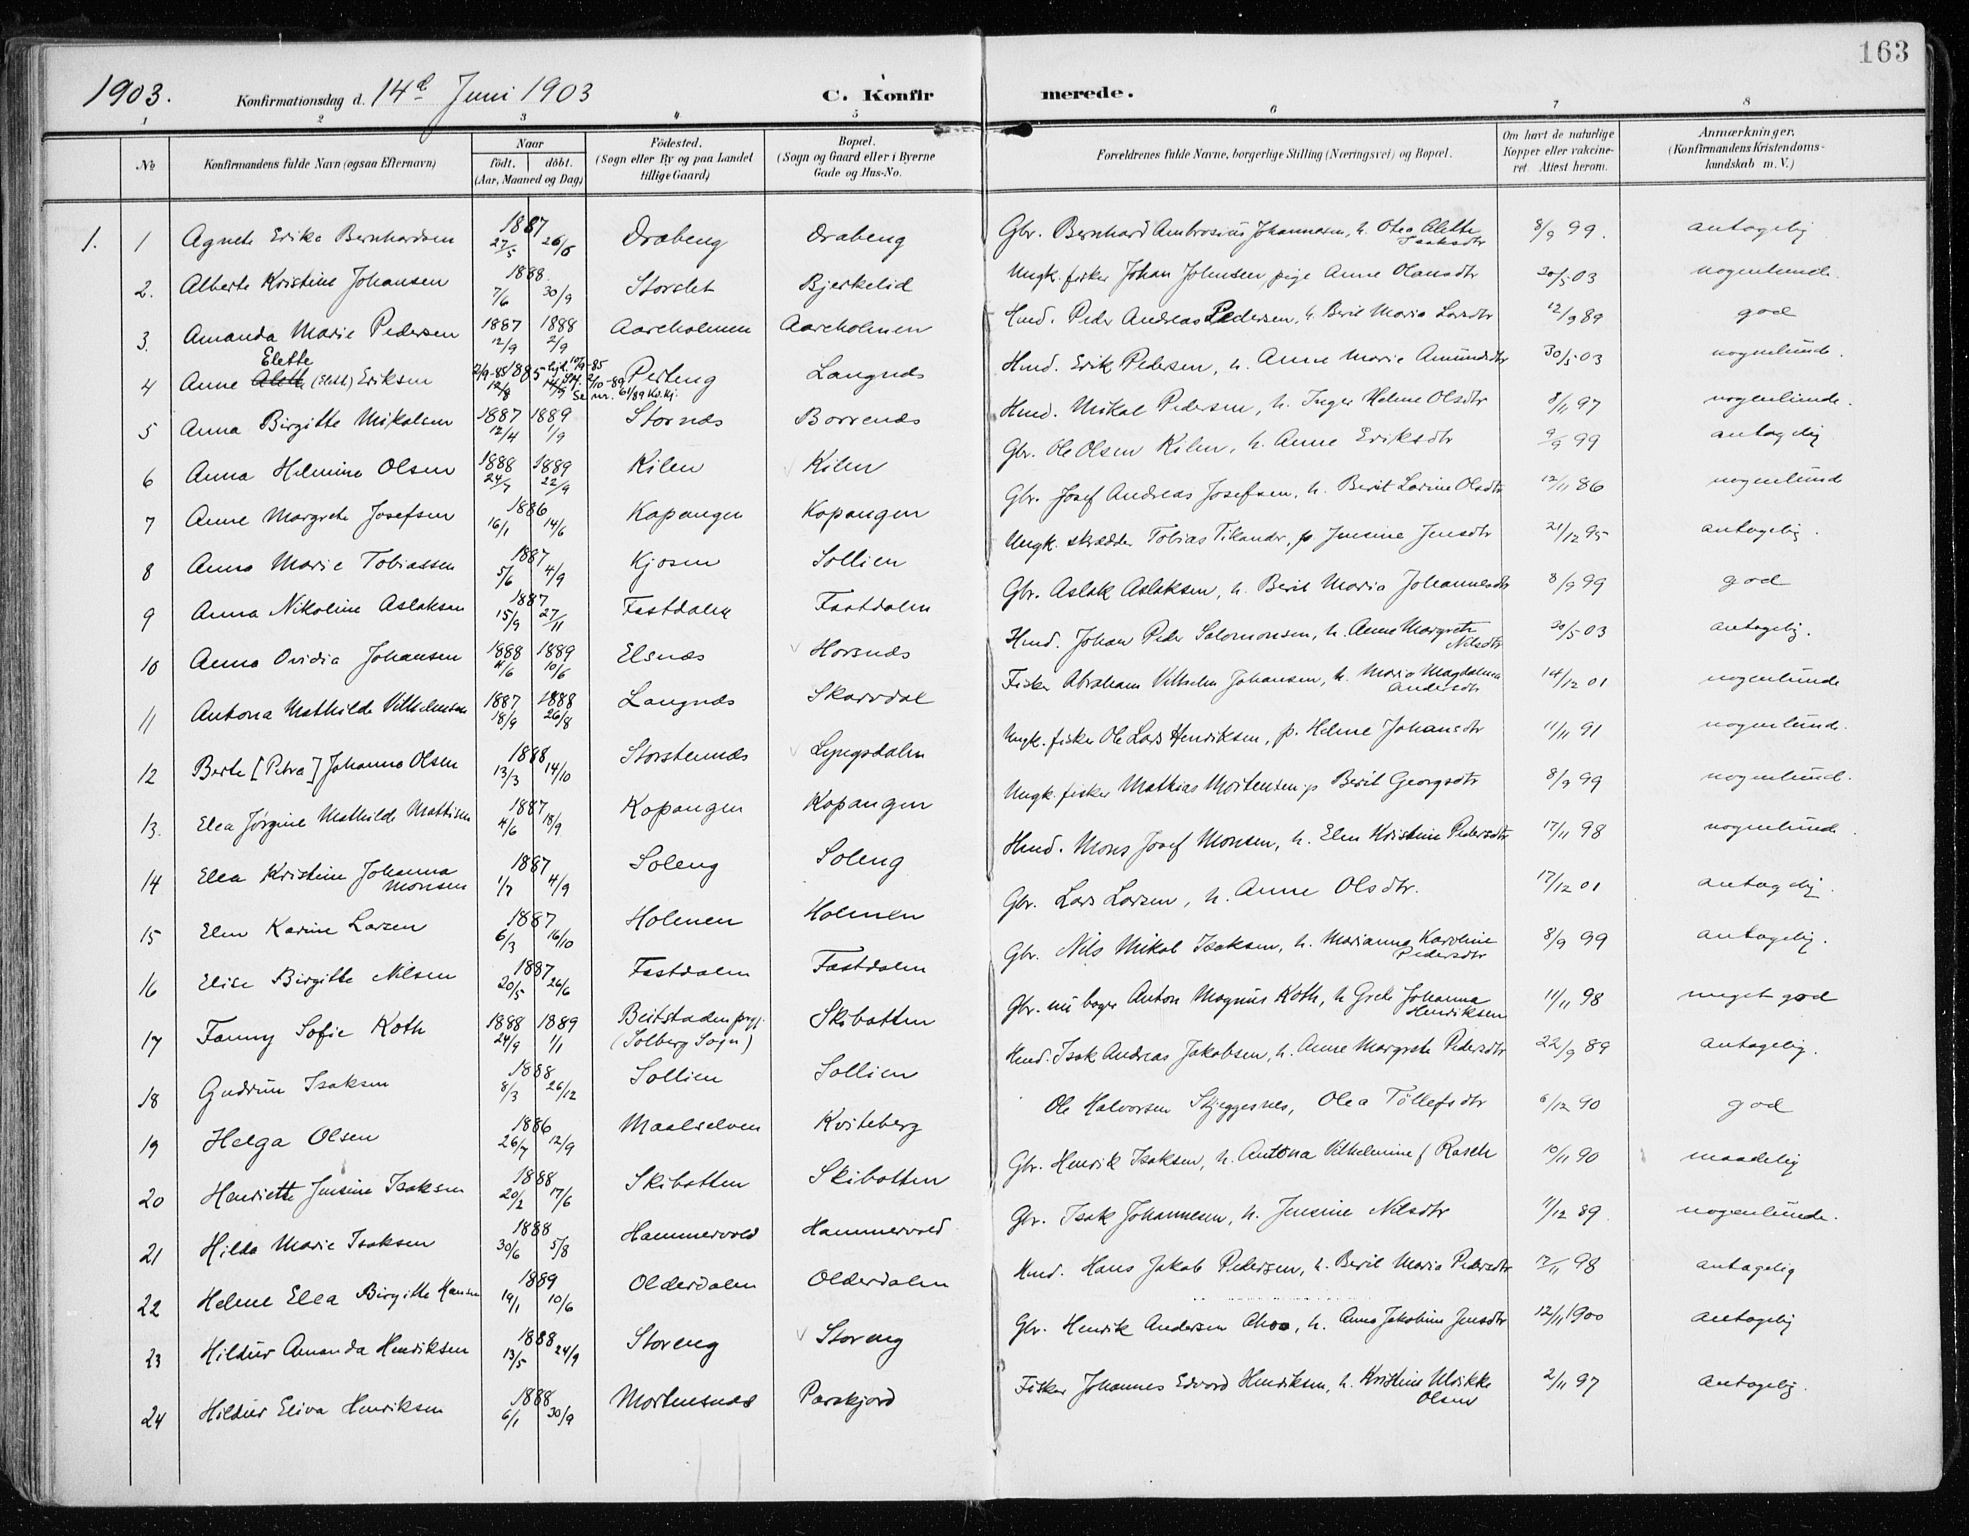 163
1903. Konfirmationsdag d. 14d Juni 1903 C. Konfirmerede.
1 2 3 4 5 6 7 8
No Konfirmandens fulde Navn (ogsaa Efternavn) Naar födt. döbt. (Aar, Maaned og Dag) Födested. (Sogn eller By og paa Landet tillige Gaard) Bopæl. (Sogn og Gaard eller i Byerne Gade og Hus-No. Forældrenes fulde Navne, borgerlige Stilling (Næringsvei) og Bopæl. Om havt de naturlige Kopper eller vakcineret Attest herom. Anmærkninger. (Konfirmandens Kristendomskundskab m. V.)
1. 1 Agnete Erika Bernhardsen 1887 27/5 26/6 Drabeng Drabeng Gbr. Bernhard Ambrosius Johannesen, h. Otea Alette Isaksdtr 8/9 99. antagelig
2. Alberte Kristine Johansen 1888 7/6 30/9 Storslet Bjerkelid Ungk. fisker Johan Johnsen pige Anne Olausdtr 20/5 03 nogenlunde.
3. Amanda Marie Pedersen 1887 12/9 1888 2/9 Aarcholmen Aarcholmen Hmd. Peder Andreas Pedersen, h. Berit Maria Larsdtr 12/9 89 god
4 Anne Elette (Elett) Eriksen 2/9-85 1885 12/8 Perteng Langnes Hmd. Erik Pedersen, h. Anne Marie Amundsdtr 30/5 03 nogenlunde.
5 Anna Birgitte Mikalsen 1887 12/4 1889 1/9 Stornes Borrenes Hmd. Mikal Pedersen, h. Inger Helene Olsdtr 8/11 97 nogenlunde.
6 Anna Helmine Olsen 1888 24/7 1889 22/9 Kilen Kilen Gbr. Ole Olsen Kilen, h. Anne Eriksdtr 9/9 99 antagelig
7 Anne Margrete Josefsen 1886 16/1 14/6 Kopangen Kopangen Gbr. Josef Andreas Josefsen, h. Berit Lovine Olsdtr 12/11 86 nogenlund
8 Anna Marie Tobiassen 1887 5/6 4/9 Kjosen Sollien Ungk. skrædder Tobias Tikander, p Jensine Jensdtr 21/12 95 antagelig.
9 Anna Nikoline Aslaksen 1887 15/9 27/11 Fastdalen Fastdalen Gbr. Aslak Aslaksen, h. Berit Maria Johannesdtr 8/9 99 god
10 Anna Ovidia Johansen 1888 4/6 1889 10/6 Elsnes Horsnes Hmd. Johan Peder Salomonsen, h. Anne Margrete Nilsdtr 20/5 03 antagelig.
11 Antona Mathilde Vilhelmsen 1887 18/9 1888 26/8 Langnes Skarvdal Fisker Abraham Vilhelm Johansen, h. Maria Magdalena Andersdtr 14/12 01 nogenlunde
12 Berte [Petra] Johanna Olsen 1888 13/3 14/10 Storstennes Lyngsdalen Ungk. fisker Ole Lars Henriksen, p. Helene Johansdtr 11/11 91 nogenlund.
13. Elea Jørgine Mathilde Mattisen 1887 4/6 18/9 Kopangen Kopangen Ungk. fisker Mathias Mortensen p Berit Georgsdtr 8/9 99 nogenlund.
14 Elea Kristine Johanna Monsen 1887 1/7 4/9 Soleng Soleng Hmd. Mons Josef Monsen, h. Elen Kristine Pedersdtr 17/11 98 nogenlunde
15 Elen Karine Larsen 1887 6/3 16/10 Holmen Holmen Gbr. Lars Larsen, h. Anne Olsdtr. 17/12 01 antagelig.
16 Elise Birgitte Nilsen 1887 20/5 26/6 Fastdalen Fastdalen Gbr. Nils Mikal Isaksen, h. Marianna Karoline Pedersdtr 8/9 99 antagelig.
17 Fanny Sofie Koth 1888 24/9 1889 1/1 Beitstaden prgj. (Solberg Sogn) Skibotten Gbr. nu bager Anton Magnus Koth, h Grete Johanna Henriksen 11/11 98 meget god
18 Gudrun Isaksen 1888 8/3 26/12 Sollien Sollien Hmd. Isak Andreas Jakobsen, h. Anne Margrete Pedersdtr 22/9 89 antagelig.
19 Helga Olsen 1886 26/7 12/9 Maalselven Kviteberg Ole Halvorsen Skjeggesnes, Olea Tollefsdtr 6/12 90 god
20 Henriette Jensine Isaksen 1888 20/2 17/6 Skibotten Skibotten Gbr. Henrik Isaksen, h. Antona Vilhelmine f Rasch 10/11 90 maadelig
21 Hilda Marie Isaksen 1888 30/6 5/8 Hammervold Hammervold Gbr. Isak Johannesen, h. Jensine Nilsdtr 11/12 89. nogenlunde.
22 Helene Elea Birgitte Hansen 1889 19/1 10/6 Olderdalen Olderdalen Hmd. Hans Jakob Pedersen, h. Berit Maria Pedersdtr 17/11 98 antagelig
23 Hildur Amanda Henriksen 1888 13/5 24/9 Storeng Storeng Gbr. Henrik Andersen Ahoo, h. Anna Jakobine Jensdtr 12/11 1900 antagelig
24 Hildur Eliva Henriksen 1888 6/1 30/9 Mortensnes Parskjord Fisker Johannes Edvard Henriksen, h. Kristine Ulrikke Olsen 2/11 97 antagelig.